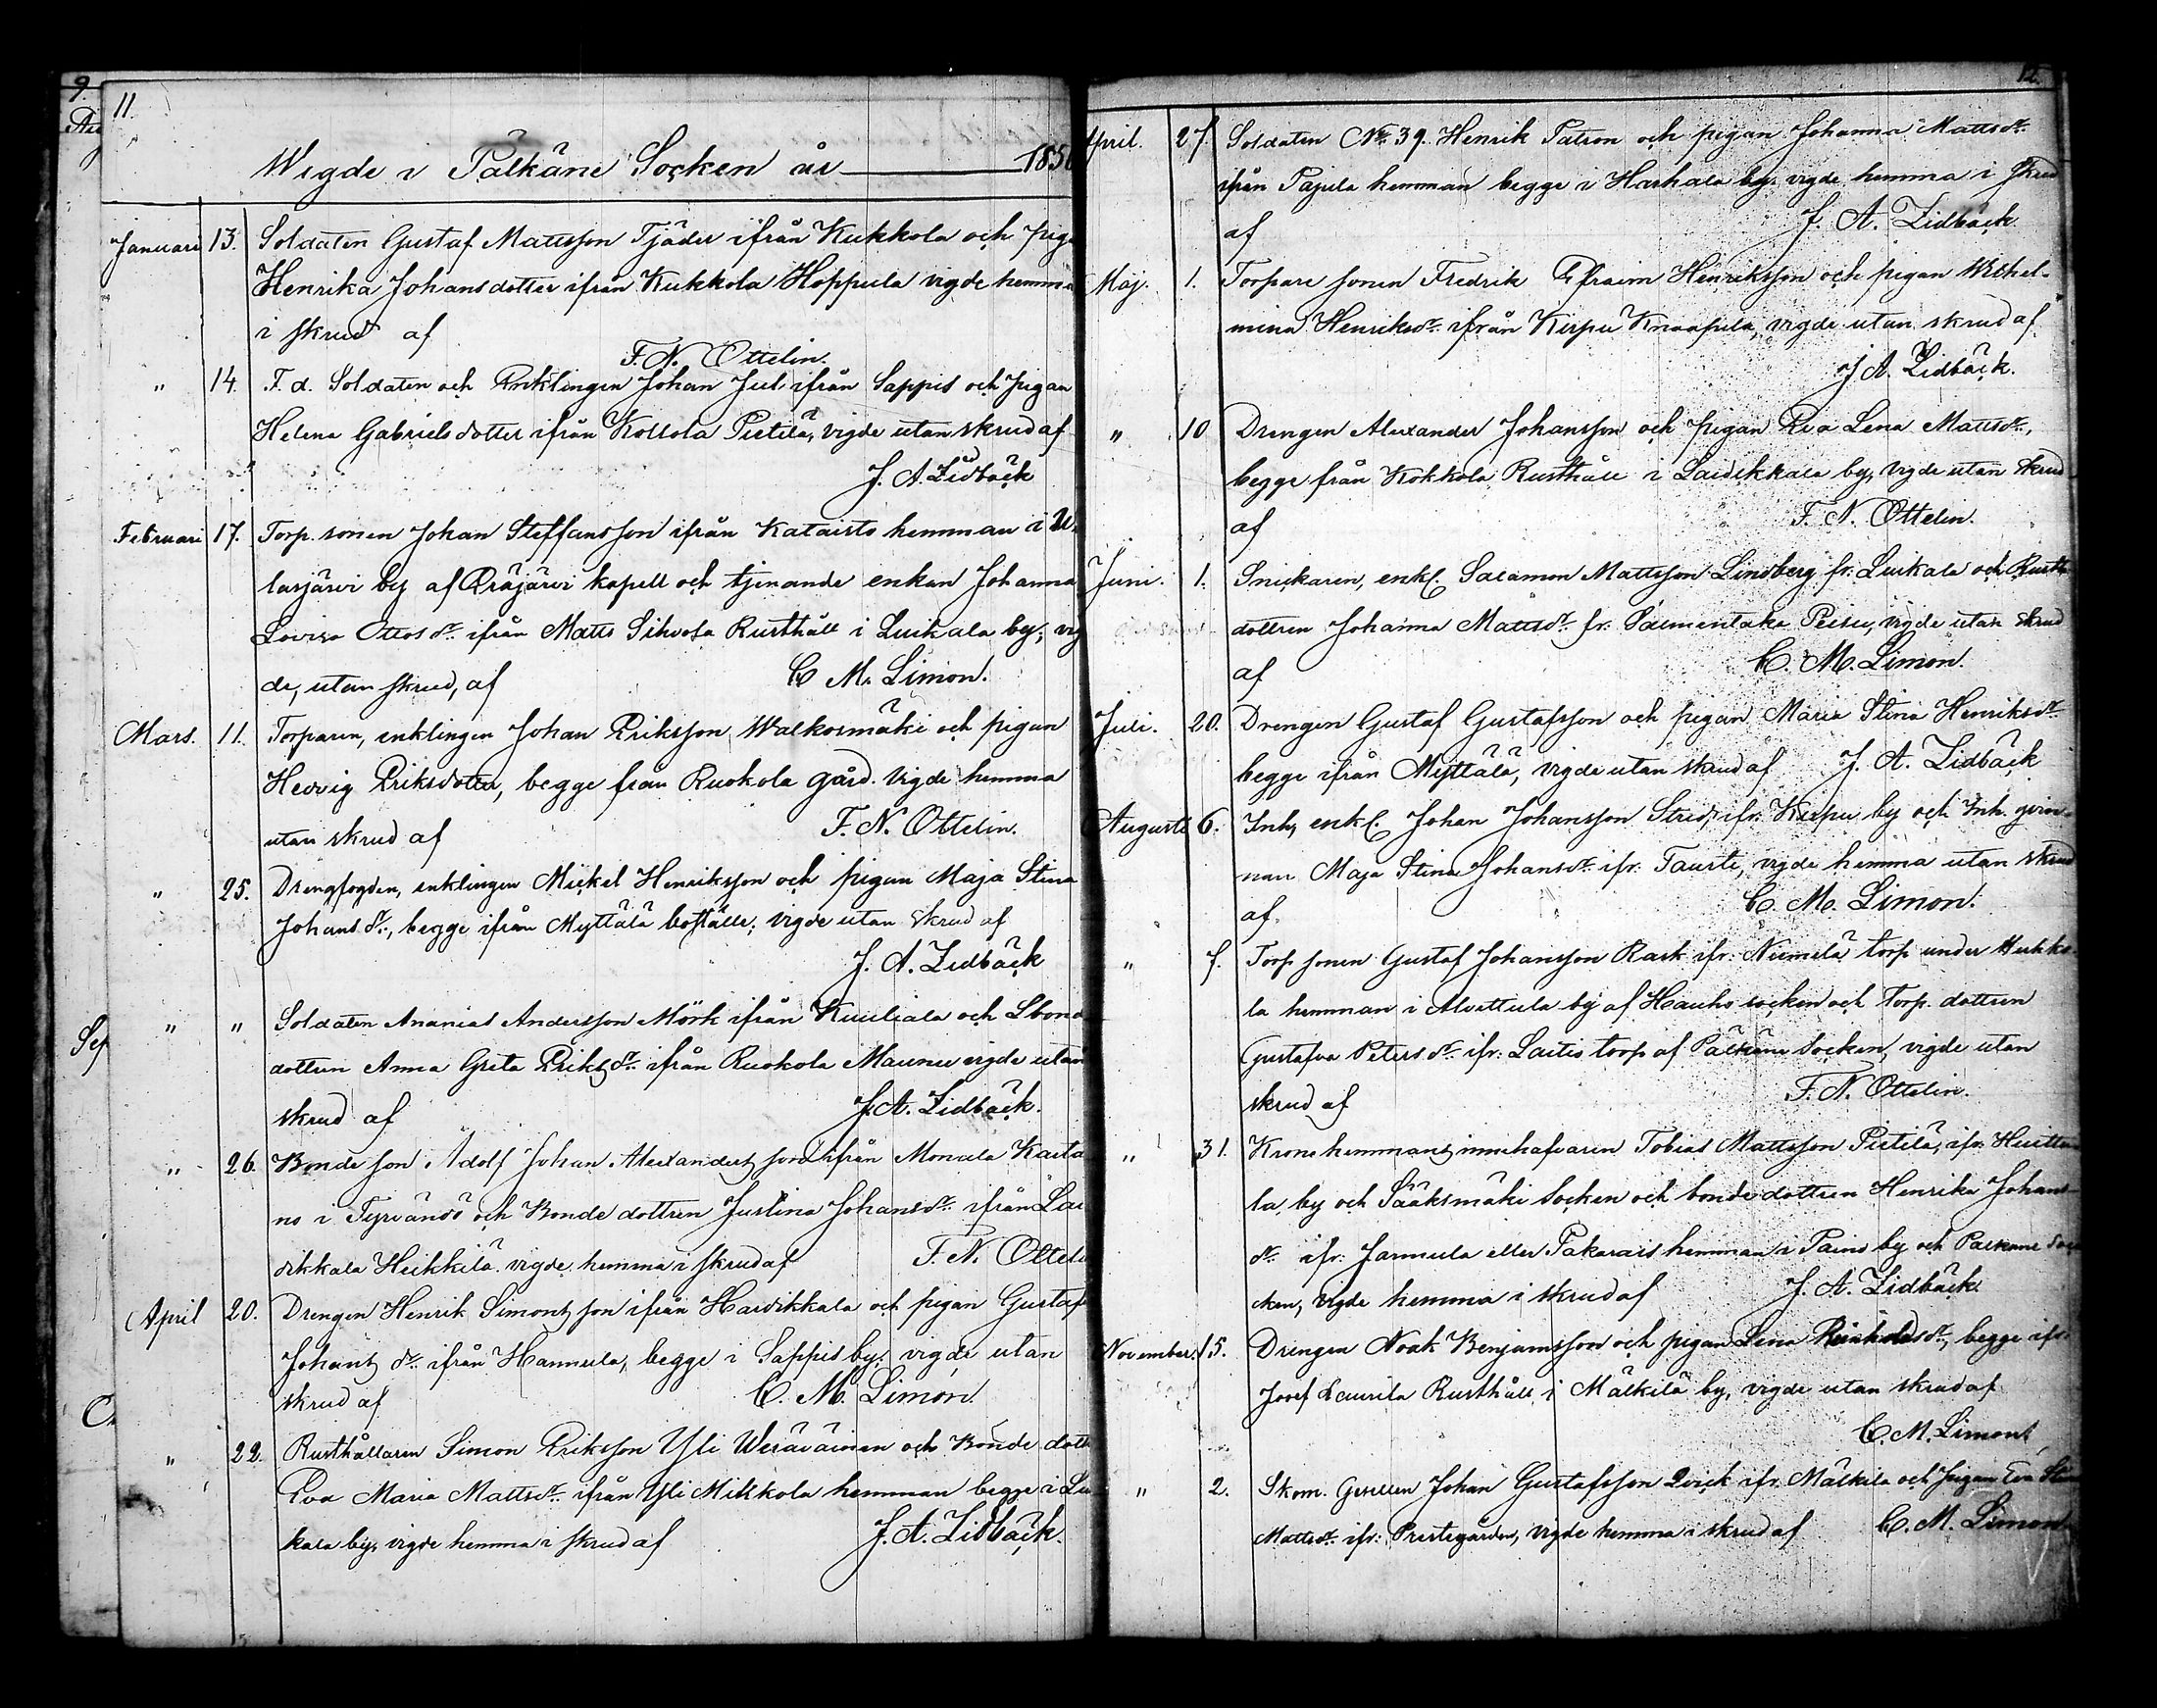 9.
11.
Wigde i Pälkäne Socken år 185
Januari 13. Soldaten Gustaf Mattsson Tjäder ifrån Kukkola och pig
Henrika Johansdotter ifrån Kukkola Hoppula vigde hemma
i skrud af
F. N. Ottelin.
" 14. F. d. Soldaten och Enklingen Johan Jul ifrån Sappis och Pigan
Helena Gabrielsdotter ifrån Kollola Pietilä, vigde utan skrud af
J. A. Lidbäck
Februari 17. Torp. sonen Johan Steffansson ifrån Kataisto hemman i
lasjärvi by af Eräjärvi kapell och tjenande enkan Johanna
Lovisa Ottosdr. ifrån Matts Sihvola Rusthåll i Luikala by; vig
de, utan skrud, af C. M. Limon.
Mars. 11. Torparen, enklingen Johan Eriksson Walkosmäki och pigan
Hedvig Eriksdotter, begge från Ruokola gård. Vigde hemma
utan skrud af F. N. Ottelin.
" 25. Drengfogden, enklingen Mickel Henriksson och pigan Maja Stina
Johansdr., begge ifrån Myttälä boställe; vigde utan skrud af
J. A. Lidbäck
Sep
" " Soldaten Ananias Andersson Mörk ifrån Kuuliala och Sbond
dottren Anna Greta Eriksdr. ifrån Ruokola Maunu vigde utan
skrud af J. A. Lidbäck.
" 26. Bonde son Adolf Johan Alexanders son ifrån Monula Karta
no i Tyrväntö och Bonde dottren Justina Johansdr. ifrån Lai
dikkala Heikkilä. vigde hemma i skrud af F. N. Ottelin
April 20. Drengen Henrik Simonsson ifrån Harvikkala och pigan Gustaf
Johansdr. ifrån Hannula, begge i Sappis by; vigde utan
skrud af C. M. Limon.
" 22. Rusthållaren Simon Eriksson Yli Weräväinen och Bonde dott
Eva Maria Mattsdr. ifrån Yli Mikkola hemman begge i Lui
kala by, vigde hemma i skrud af J. A. Lidbäck.
12.
April. 27. Soldaten No. 39. Henrik Patron och pigan Johanna Mattsdr.
ifrån Pajula hemman begge i Harhala by, vigde hemma i skrud
af J. A. Lidbäck.
Maj. 1. Torpare sonen Fredrik Efraim Henriksson och pigan Wilhel-
mina Henriksdr. ifrån Kirpu Knaapila, vigde utan skrud af
J. A. Lidbäck.
" 10 Drengen Alexander Johansson och pigan Eva Lena Mattsdr.,
begge från Kokkola Rusthåll i Laidikkala by, vigde utan skrud
af F. N. Ottelin.
Juni. 1. Snickaren, enkl. Salamon Mattsson Lindberg fr. Luikala och Rusth
dottren Johanna Mattsdr. fr. Salmentaka Peisu, vigde utan skrud
af C. M. Limon.
Juli. 20. Drengen Gustaf Gustafsson och pigan Maria Stina Henriksdr.
begge ifrån Myttälä, vigde utan skrud af J. A. Lidbäck
Augusti 6. Inh. enkl. Johan Johansson Strid, ifr. Kirpu by och Inh. qvin-
nan Maja Stina Johansdr. ifr. Tausti, vigde hemma utan skrud
af. C. M. Limon.
" 7. Torp sonen Gustaf Johansson Rask ifr. Niemelä torp under Kukko
la hemman i Alvettula by af Hauho socken och Torp. dottren
Gustafva Petersdr. ifr. Laitis torp af Pälkäne Socken, vigde utan
skrud af F. N. Ottelin.
" 31. Kronohemmansinnehafvaren Tobias Mattsson Pietilä, ifr. Huittu
la by och Sääksmäki Socken och bonde dottren Henrika Johans
dr. ifr. Jammula eller Pakarais hemman i Painos by och Pälkäne So
cken, vigde hemma i skrud af J. A. Lidbäck.
November. 15. Drengen Noak Benjamsson och pigan Lena Reinholdsdr., begge ifr.
Josef Laurila Rusthåll i Mälkilä by, vigde utan skrud af
C. M. Limon
" 2. Skom. Gesellen Johan Gustafsson Qvick ifr. Mälkilä och Pigan Eva Stin
Mattsdr. ifr. Prestegården, vigde hemma i skrud af C. M. Limon